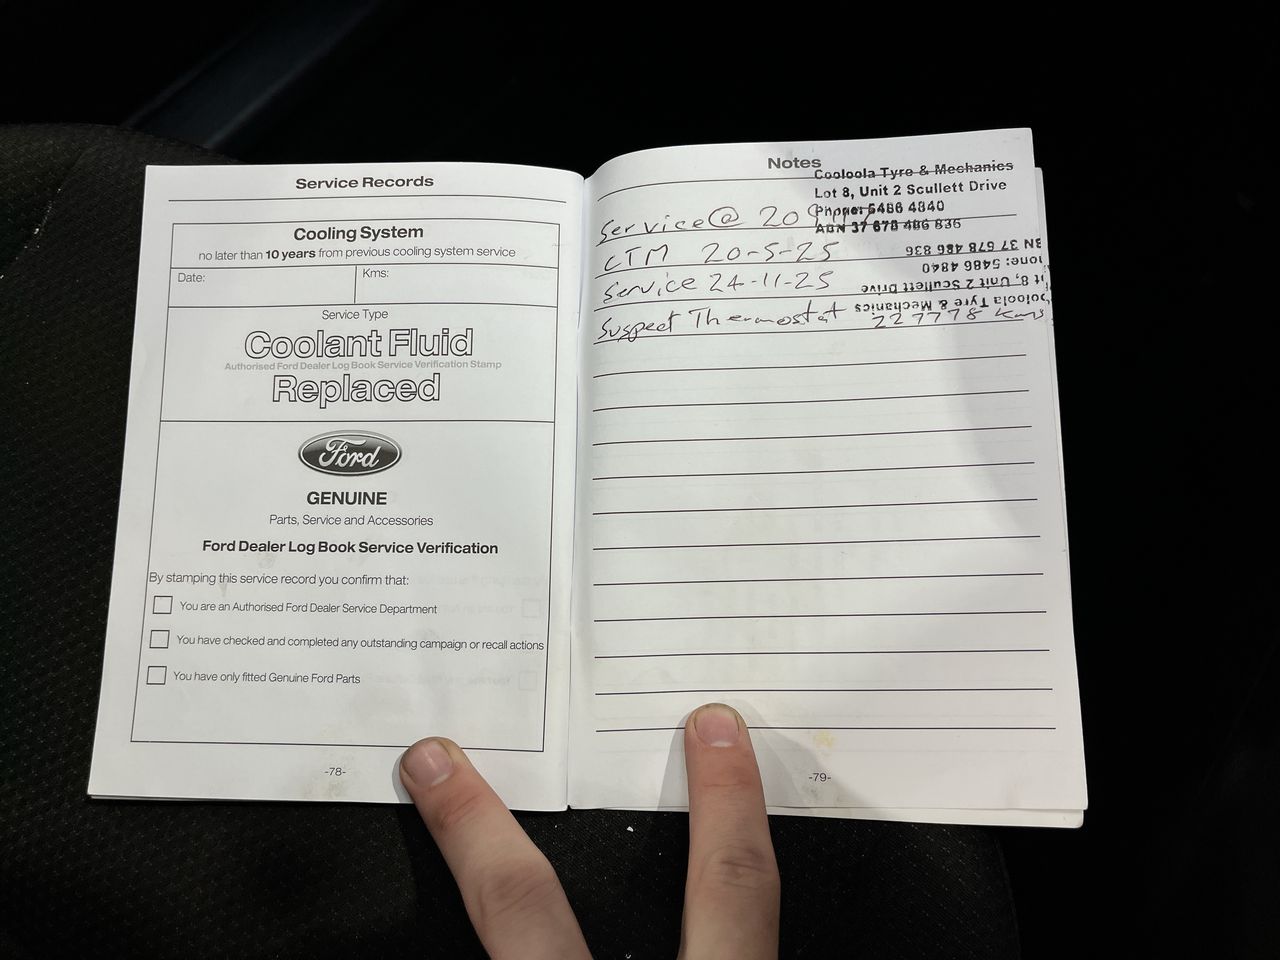 Service Records
Cooling System
no later than 10 years from previous cooling system service
Date:
Kms:
Service Type
Coolant Fluid
Authorised Ford Dealer Log Book Service Verification Stamp
Replaced
Ford
GENUINE
Parts, Service and Accessories
Ford Dealer Log Book Service Verification
By stamping this service record you confirm that:
You are an Authorised Ford Dealer Service Department
You have checked and completed any outstanding campaign or recall actions
You have only fitted Genuine Ford Parts
-78-
Notes
Cooloola Tyre & Mechanics
Lot 8, Unit 2 Scullett Drive
Phone: 5486 4840
ABN 37 678 486 836
Service @ 20
CTM 20-5-25
Service 24-11-25
Suspect Thermostat 227778 kms
ooloola Tyre & Mechanics
ot 8, Unit 2 Scullett Drive
one: 5486 4840
BN 37 678 486 836
-79-